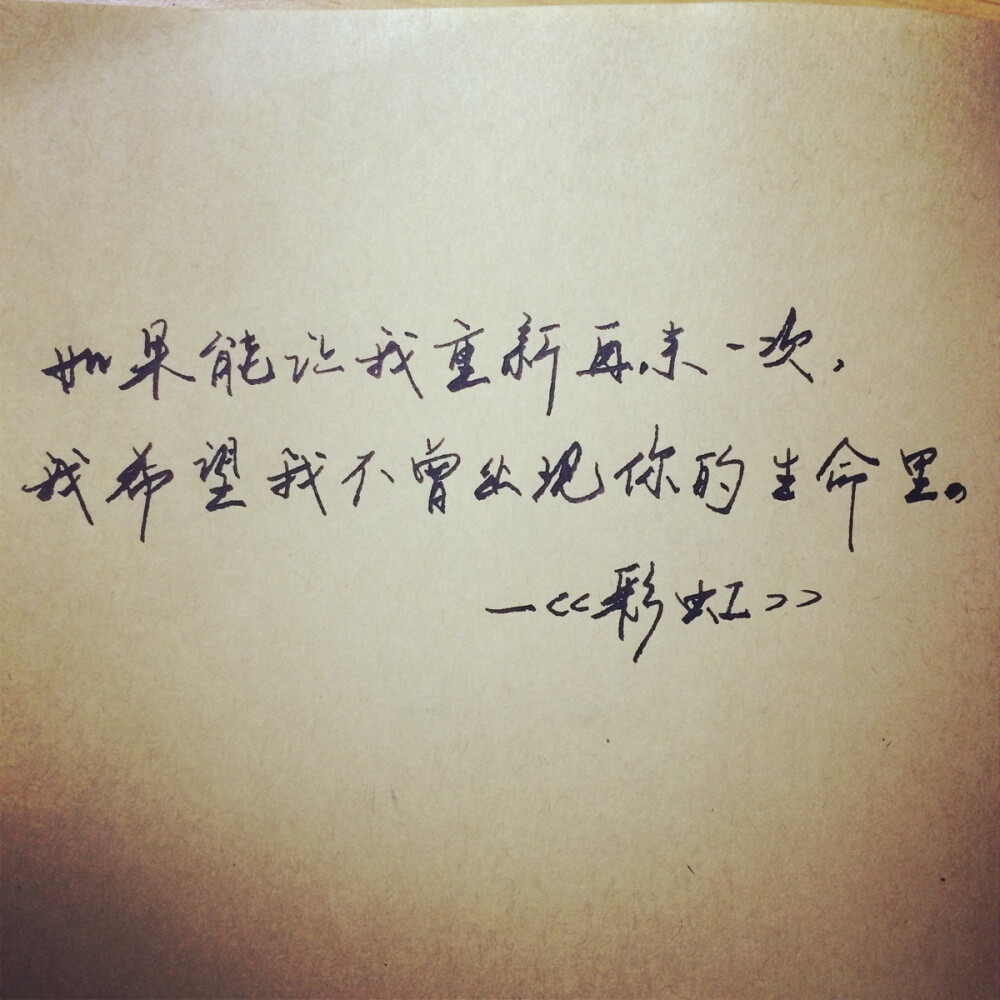 如果能让我重新再来一次,
我希望我不曾出现你的生命里。
—<<彩虹>>